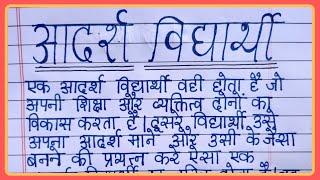 आदर्श विद्यार्थी
एक आदर्श विद्यार्थी वही होता है जो
अपनी शिक्षा और व्यक्तित्व दोनों का
विकास करता है। दूसरे विद्यार्थी उसे
अपना आदर्श माने और उसी के जैसा
बनने की प्रयत्न करे ऐसा एक